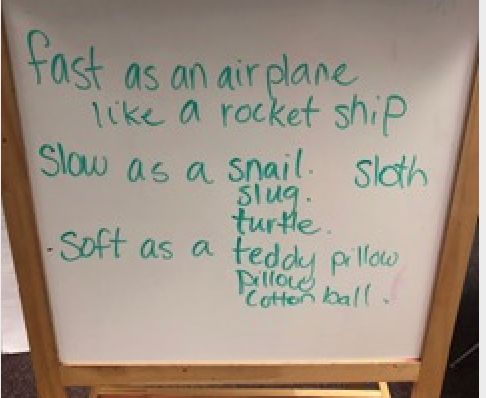 fast as an airplane
like a rocket ship
Slow as a snail. sloth
slug.
turtle.
. Soft as a teddy pillow
pillow
cotton ball.